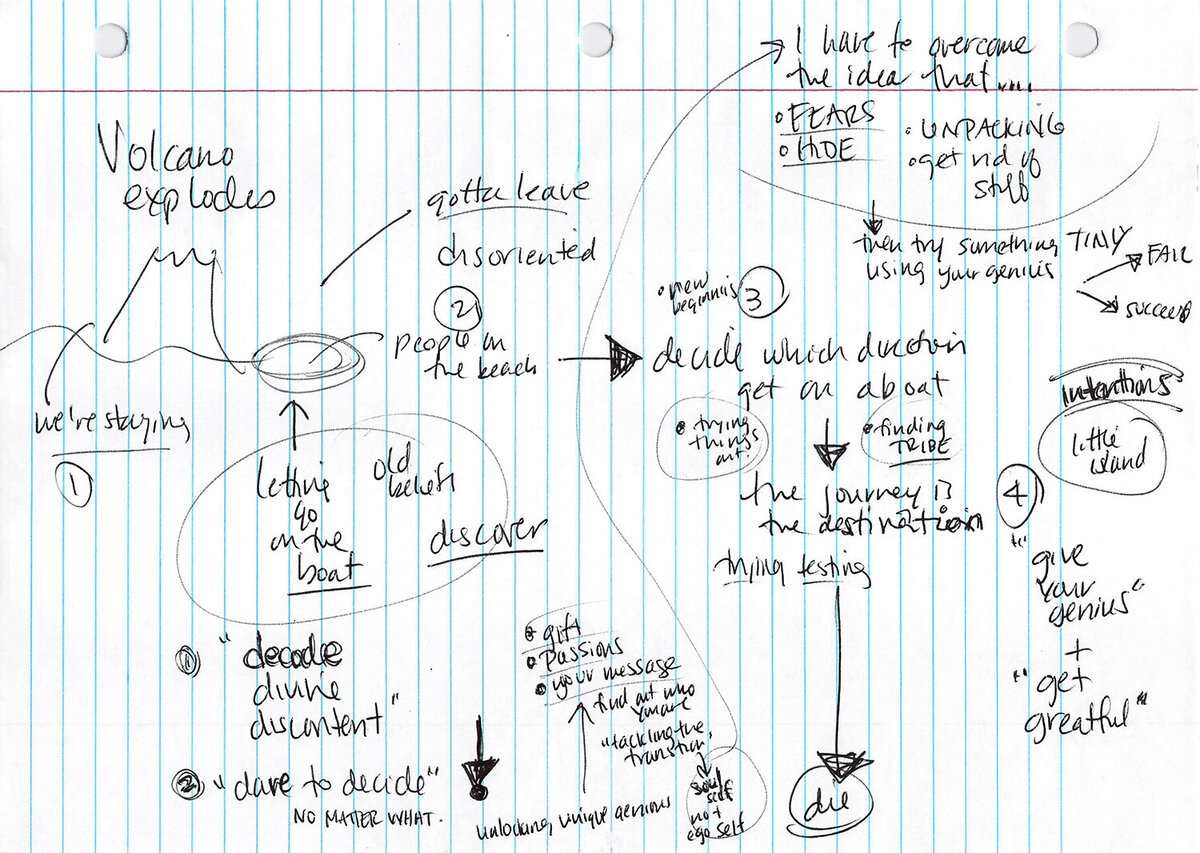 Volcano
explodes
we're staying
1
gotta leave
disoriented
2
people on
the beach
letting
go
on the
boat
old
beliefs
discover
1 "decode
divine
discontent"
2 "dare to decide"
NO MATTER WHAT.
• gift
• passions
• your message
find out who
you are
"tackling the
transition,
unlocking unique genious
soul
self
not
ego self
I have to overcome
the idea that.....
• FEARS
• HIDE
• UNPACKING
• get rid of
stuff
then try something TINY
using your genius
FAIL
succeed
• new
beginnis
3
decide which direction
get on a boat
• trying
things
out
• finding
TRIBE
the journey is
the destination
trying testing
die
intentions
little
island
4
"give
your
genius"
+
"get
greatful"